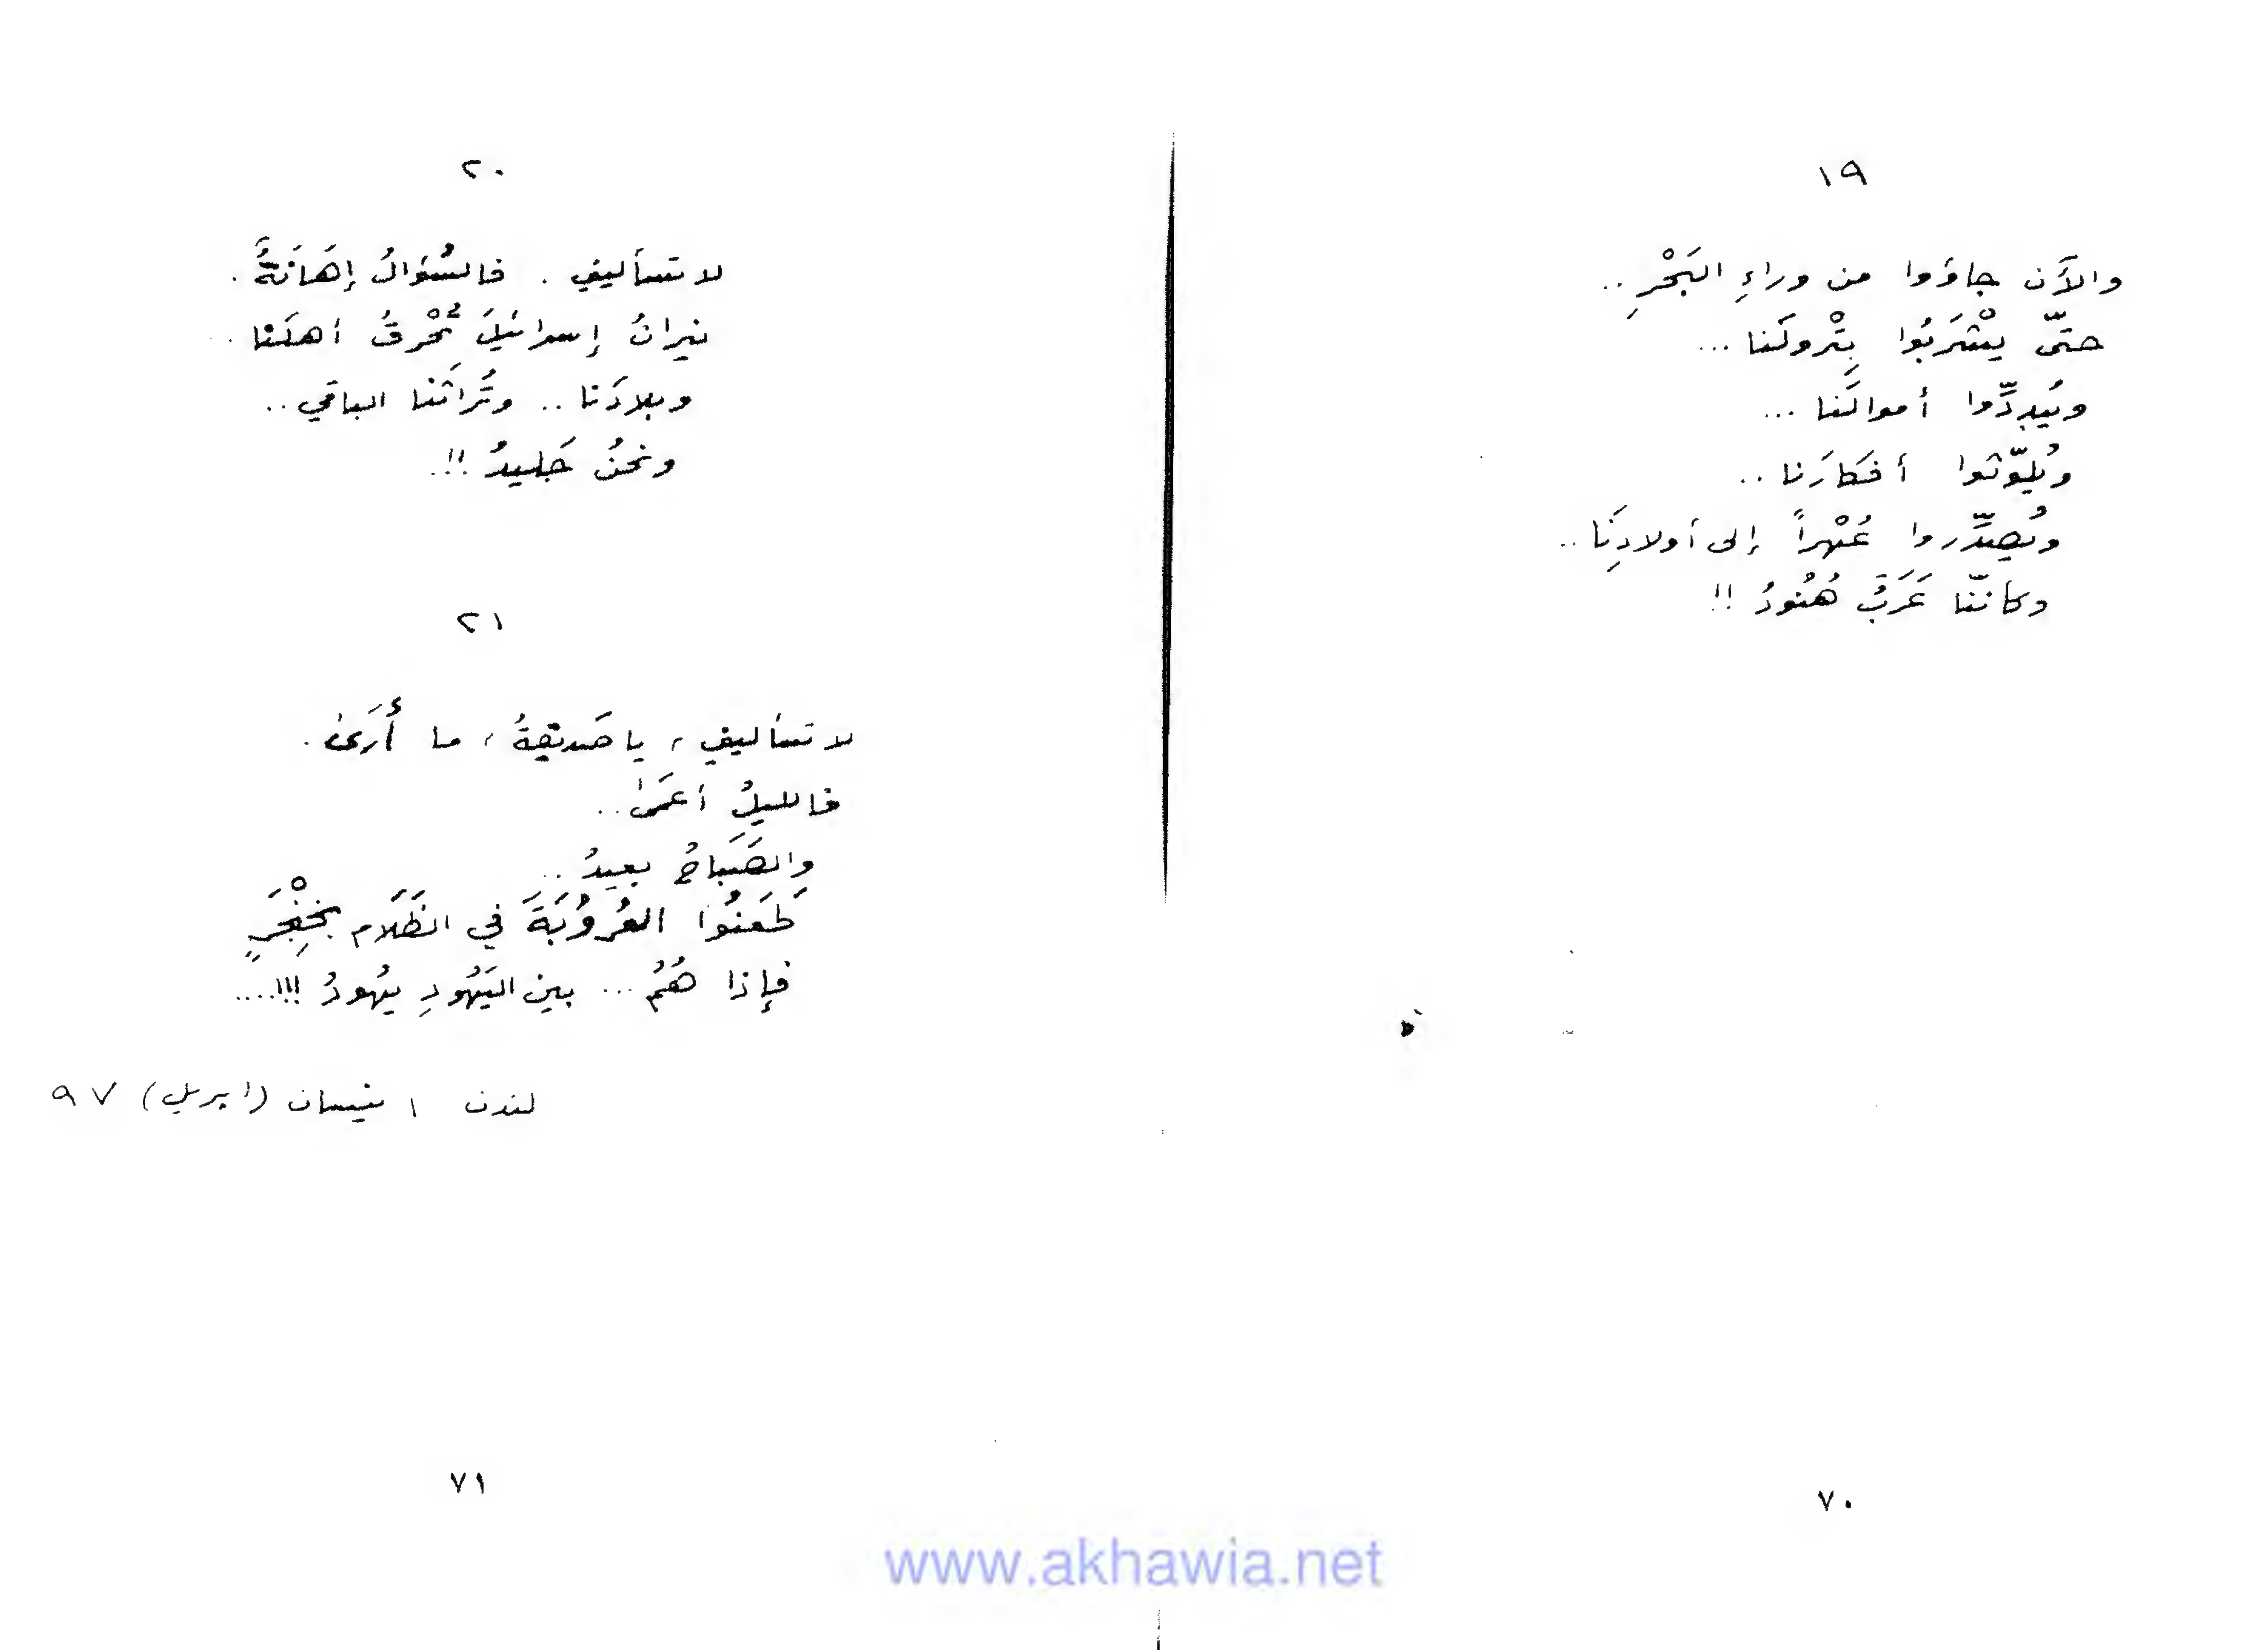 ١٩
والآن جاؤوا من وراءِ البَحْرِ ..
حتّى يشْرَبُوا بِتْرولَنا ...
ويُبدِّدُوا أموالَنا ...
ويُلوّثوا أفكارَنا ..
ويُصدِّروا عُهْراً إلى أولادِنَا ..
وكأننّا عَرَبٌ هُنُودُ !!
٧٠
٢٠
لا تسأليني . فالسُّؤالُ إهَانَةٌ .
نيرانُ إسرائيلَ تُحْرِقُ أهلَنا ..
وبلادَنا .. وتُراثَنا الباقي ..
ونحنُ جَليدُ !!.
٢١
لا تسأليني ، يا صَديقةُ ، ما أَرَى .
فالليلُ أعمَى ..
والصَبَاحُ بعيدُ ..
طَعَنُوا العُرُوبَةَ في الظَلَام بخِنْجَرٍ
فإذا هُمُ ... بين اليَهُودِ يهُودُ !!!....
لندن ١ نيسان (ابريل) ٩٧
٧١
www.akhawia.net